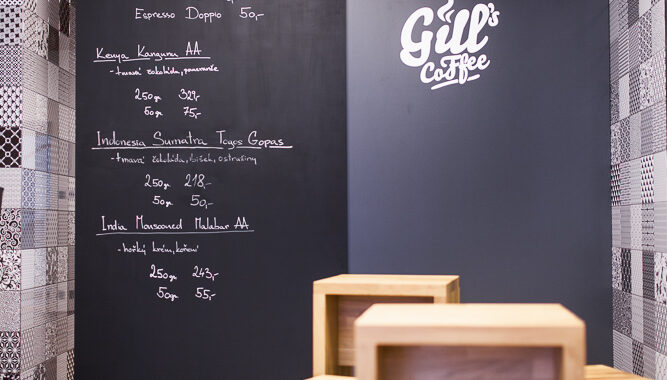 Espresso Doppio 50,-
Kenya Kangunu AA
- tmavá čokoláda, pomeranče
250gr 329,-
50gr 75,-
Indonesia Sumatra Togos Gopas
- tmavá čokoláda, bišek, ostružiny
250gr 218,-
50gr 50,-
India Monsooned Malabar AA
- hořký krém, koření
250gr 243,-
50gr 55,-
Gill's
Coffee